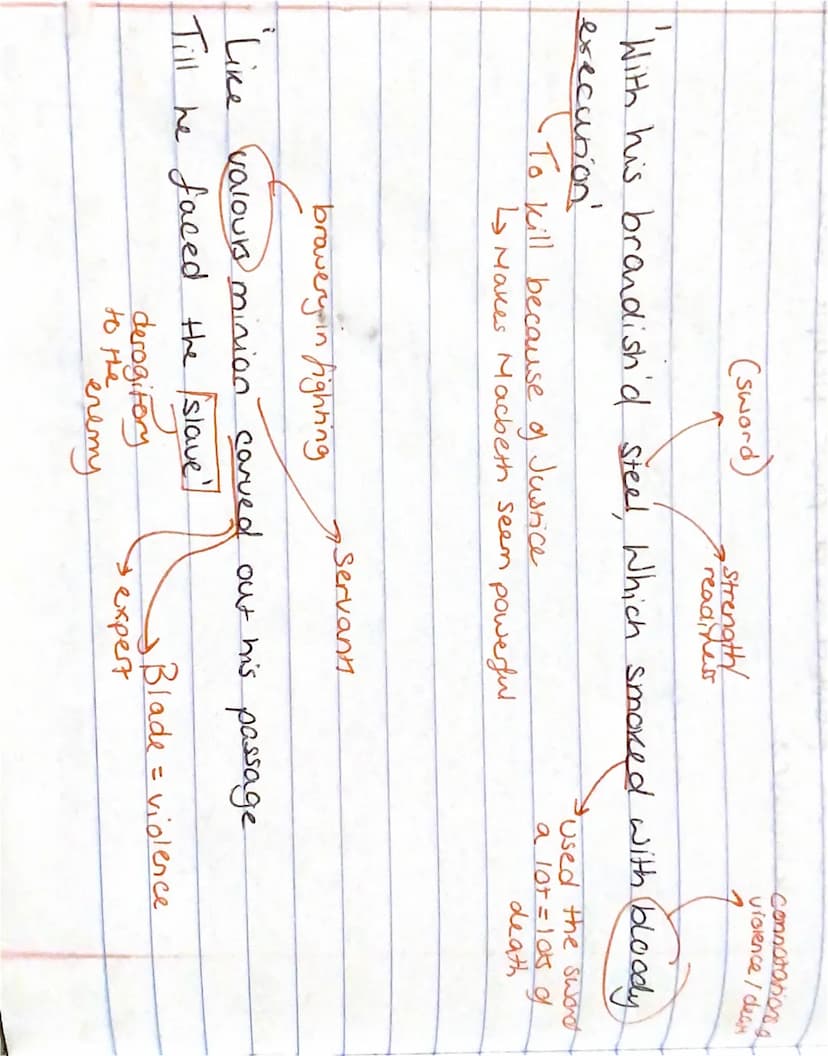 connotations of
violence / death
(sword)
strength/
readiness
'With his brandish'd steel, Which smoked with bloody
execution'
used the sword
a lot = lots of
death
To kill because of Justice
↳ Makes Macbeth seem powerful
bravery in fighting
servant
'Like valours minion carved out his passage
Till he faced the slave'
derogitory
to the
enemy
Blade = violence
expert